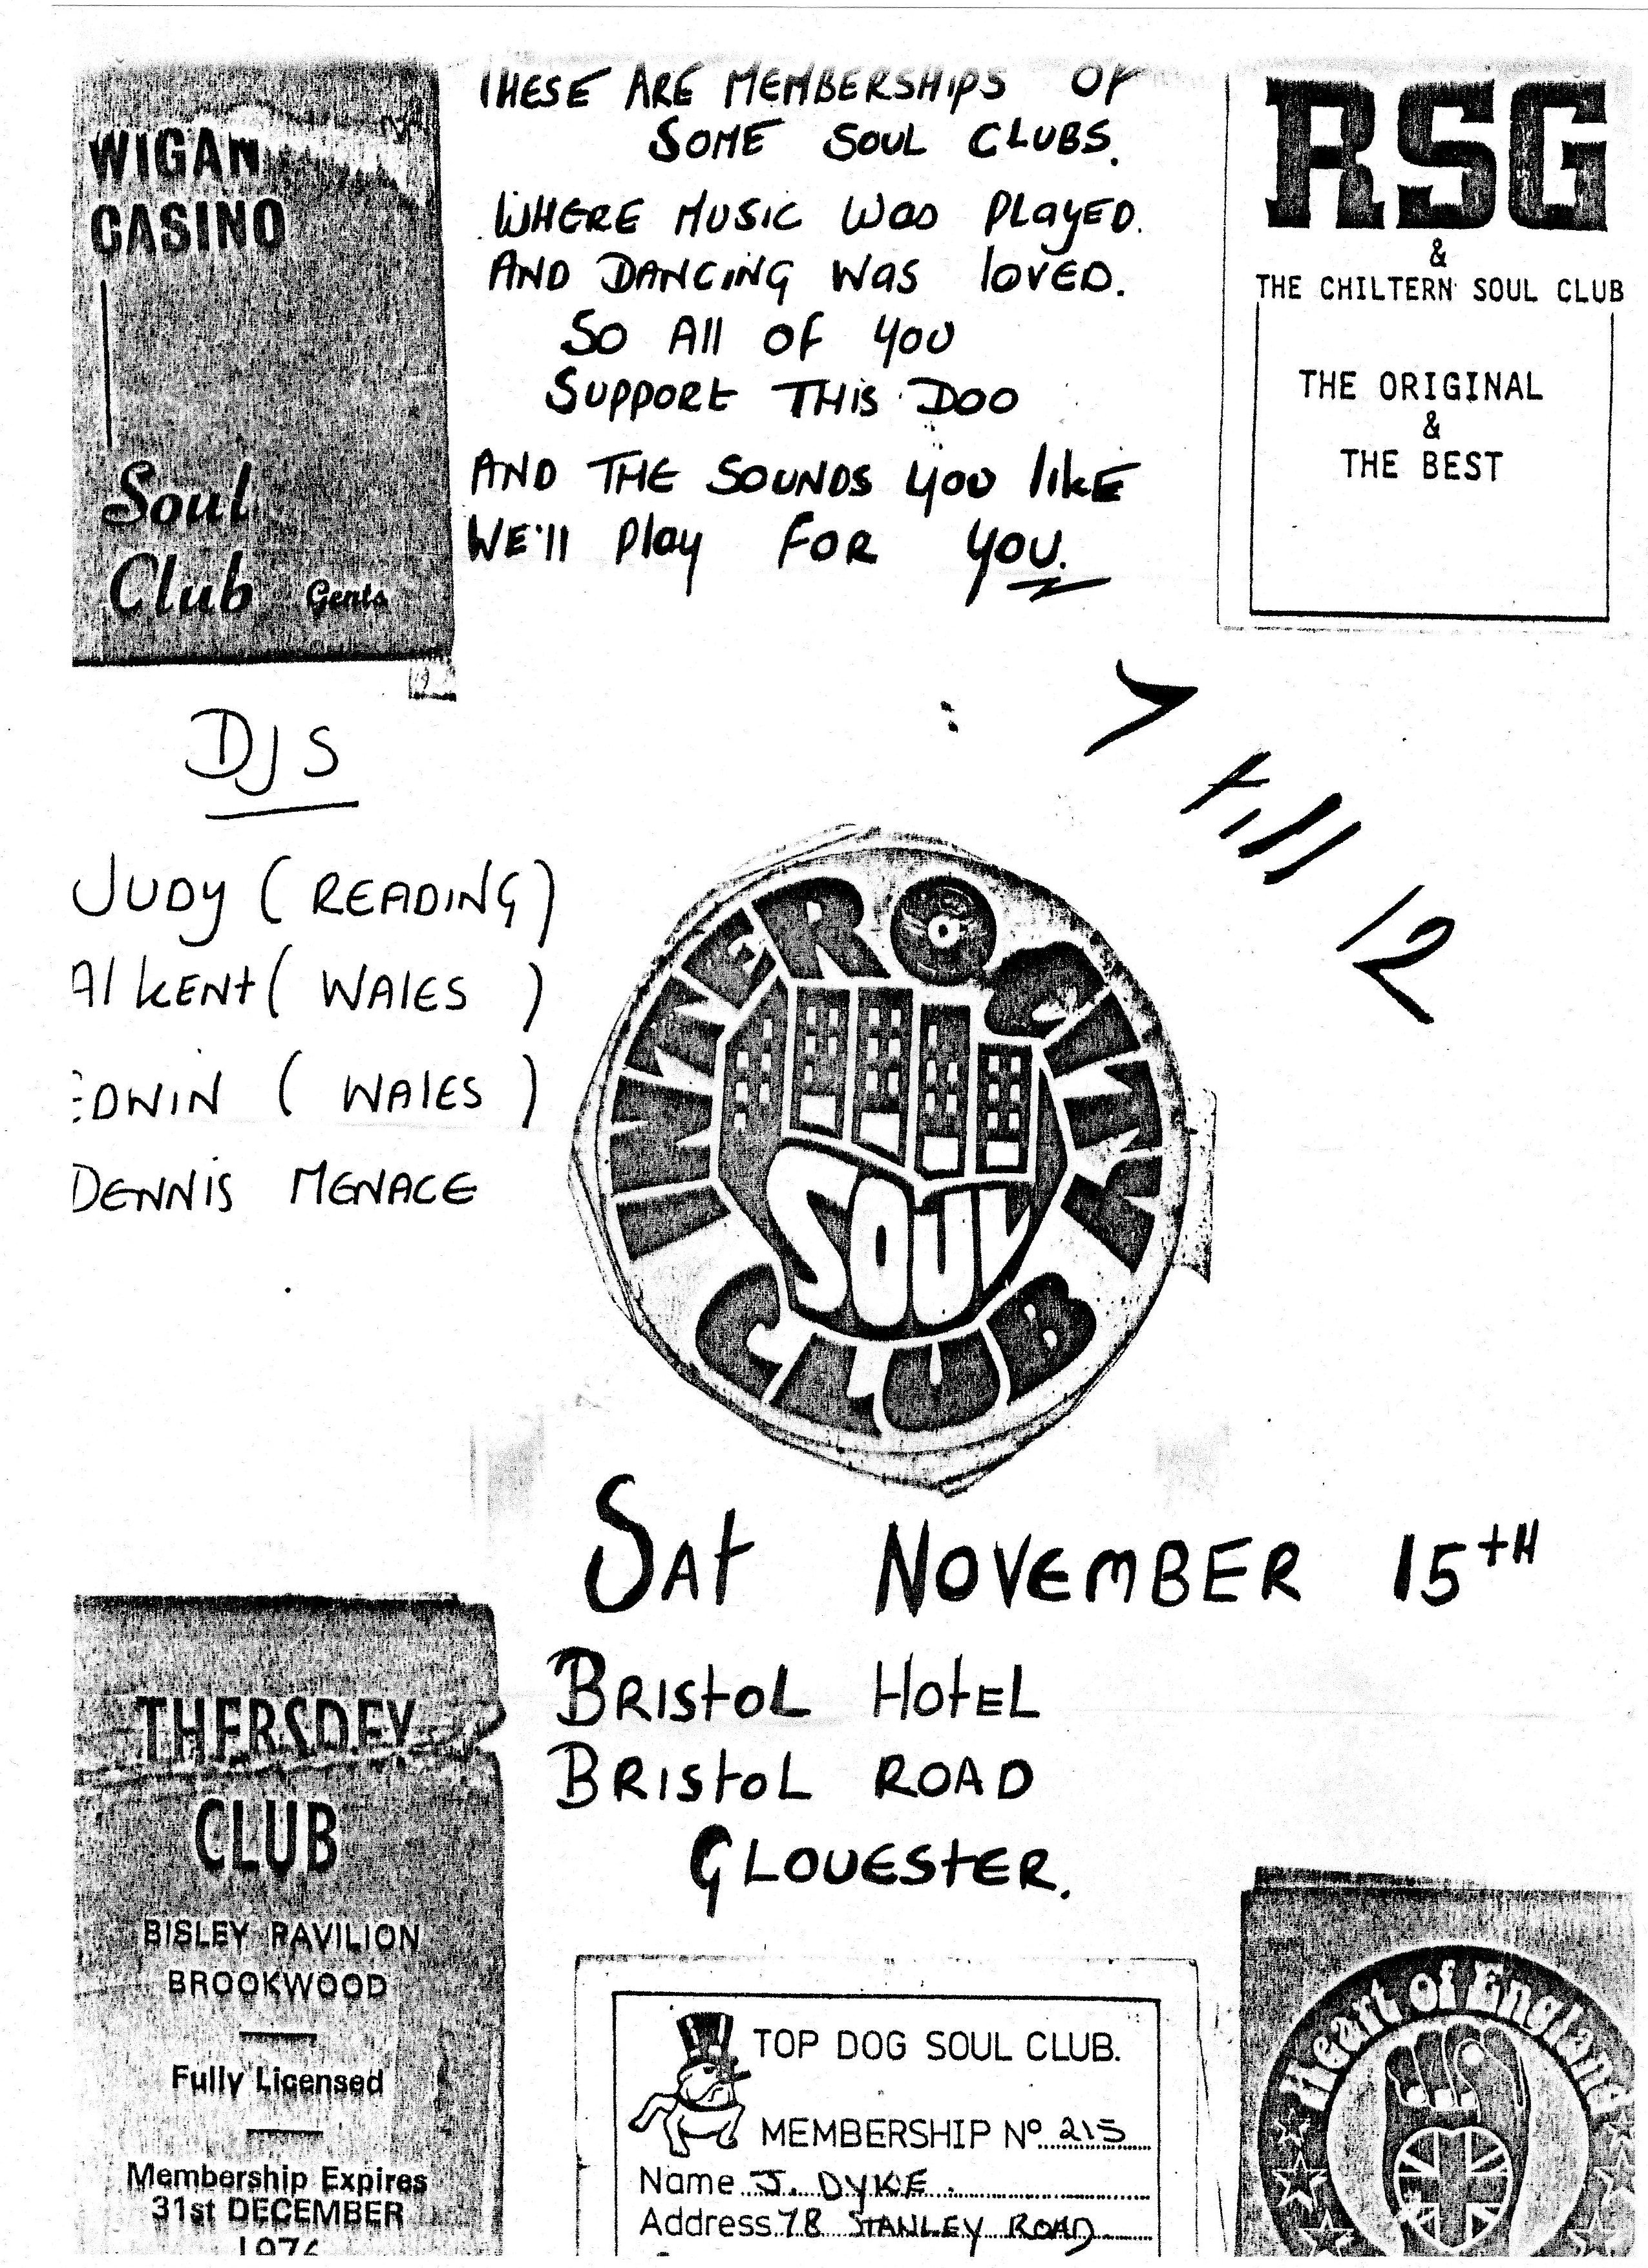 WIGAN
CASINO
Soul
Club Gents
THESE ARE MEMBERSHIPS OF
SOME SOUL CLUBS.
WHERE MUSIC Was PlayED.
AND DANCING Was loVED.
So All OF you
SUPPORT THIS DOO
AND THE SOUNDS you likE
WE'll Play FOR you.
RSG
&
THE CHILTERN SOUL CLUB
THE ORIGINAL
&
THE BEST
7 till 12
DJS
JUDy (READING)
Al KENt (WAlES)
EDWIN (WAlES)
DENNIS MENACE
INNER CITY
SOUL
CLUB
SAt NOVEMBER 15tH
BRIStOL HOtEL
BRIStOL ROAD
GLOUEStER.
THERSDEY
CLUB
BISLEY PAVILION
BROOKWOOD
Fully Licensed
Membership Expires
31st DECEMBER
TOP DOG SOUL CLUB.
MEMBERSHIP Nº 215
Name J. DYKE.
Address 78 STANLEY ROAD
Heart of England